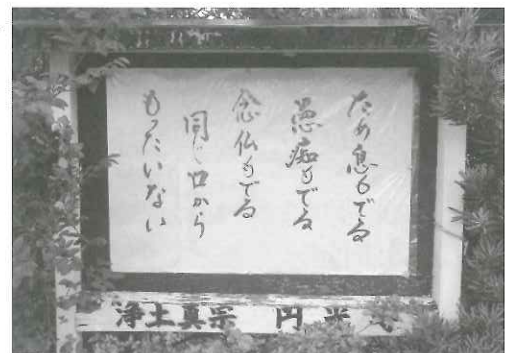 ため息もでる
愚痴もでる
念仏もでる
同じ口から
もったいない
浄土真宗 円光